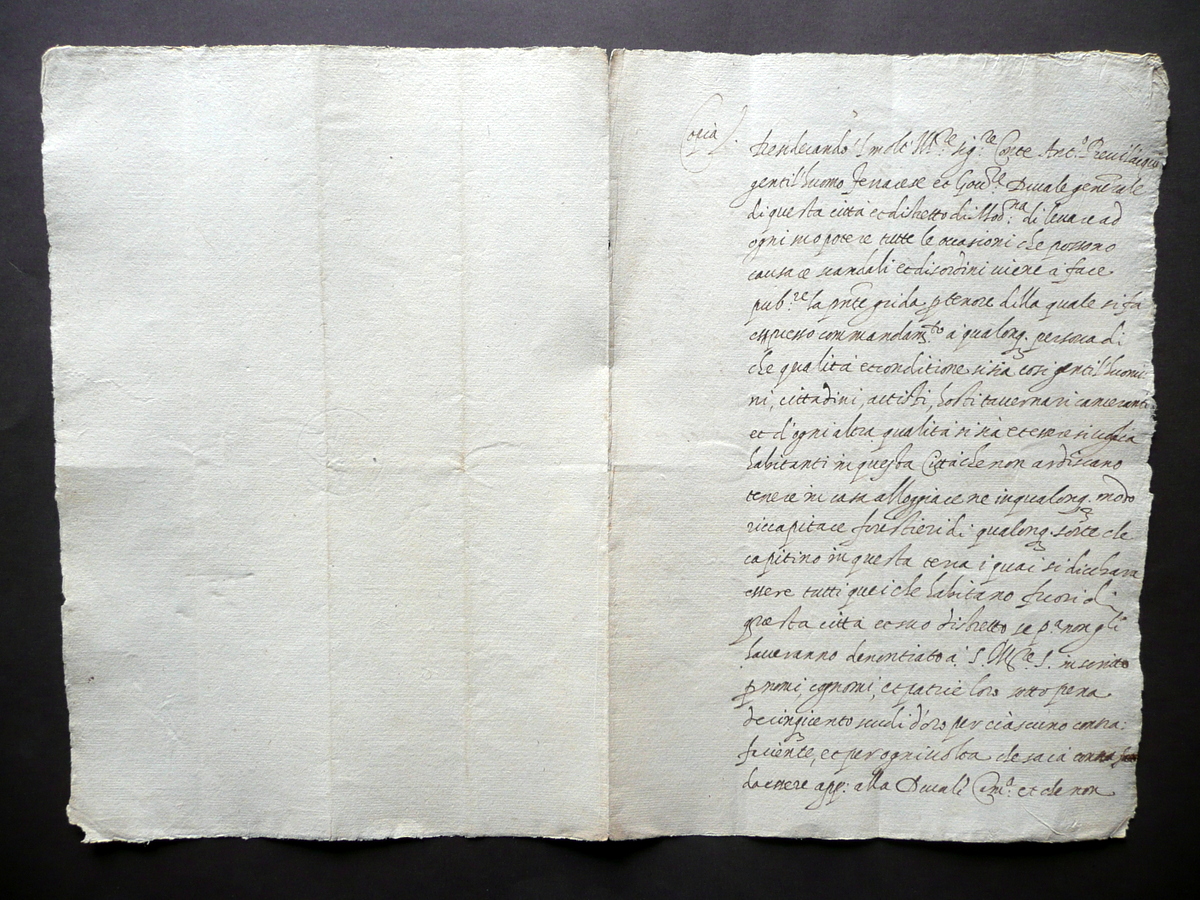 Copia
Desiderando Il molt' Mag.re sig.re Conte Ant.o Bevilacqua
gentil'huomo ferrarese et Gov.re Ducale generale
di questa città et distretto di Mod.na di levare ad
ogni suo potere tutte le occasioni che possono
causare scandali et disordini viene à fare
pub.re la pnte grida p tenore della quale si fa
espresso commandam.to à qualonq. persona di
che qualità et conditione si sia cosi gentil'huomi
ni, cittadini, artisti, hosti tavernari cameranti
et d'ogni altra qualità si sia et essere si voglia
habitanti in questa Città che non ardiscano
tenere in casa alloggiare ne in qualonq. modo
riccapitare forestieri di qualonq. sorte che
capitino in questa terra i quai si dichiara
essere tutti quei che habitano fuori di
questa città et suo distretto se p.a non gli
haveranno denontiato à S. M.re S. in scritto
p nomi, cognomi, et patrie loro sotto pena
de cinqcento scudi d'oro per ciascuno contra
faciente, et per ogni volta che sarà contra
da essere app. alla Ducal' Cam.a et che non